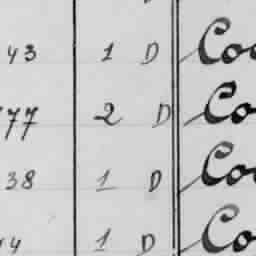 43 1 D Coo
77 2 D Co
38 1 D Coo
14 1 D Co